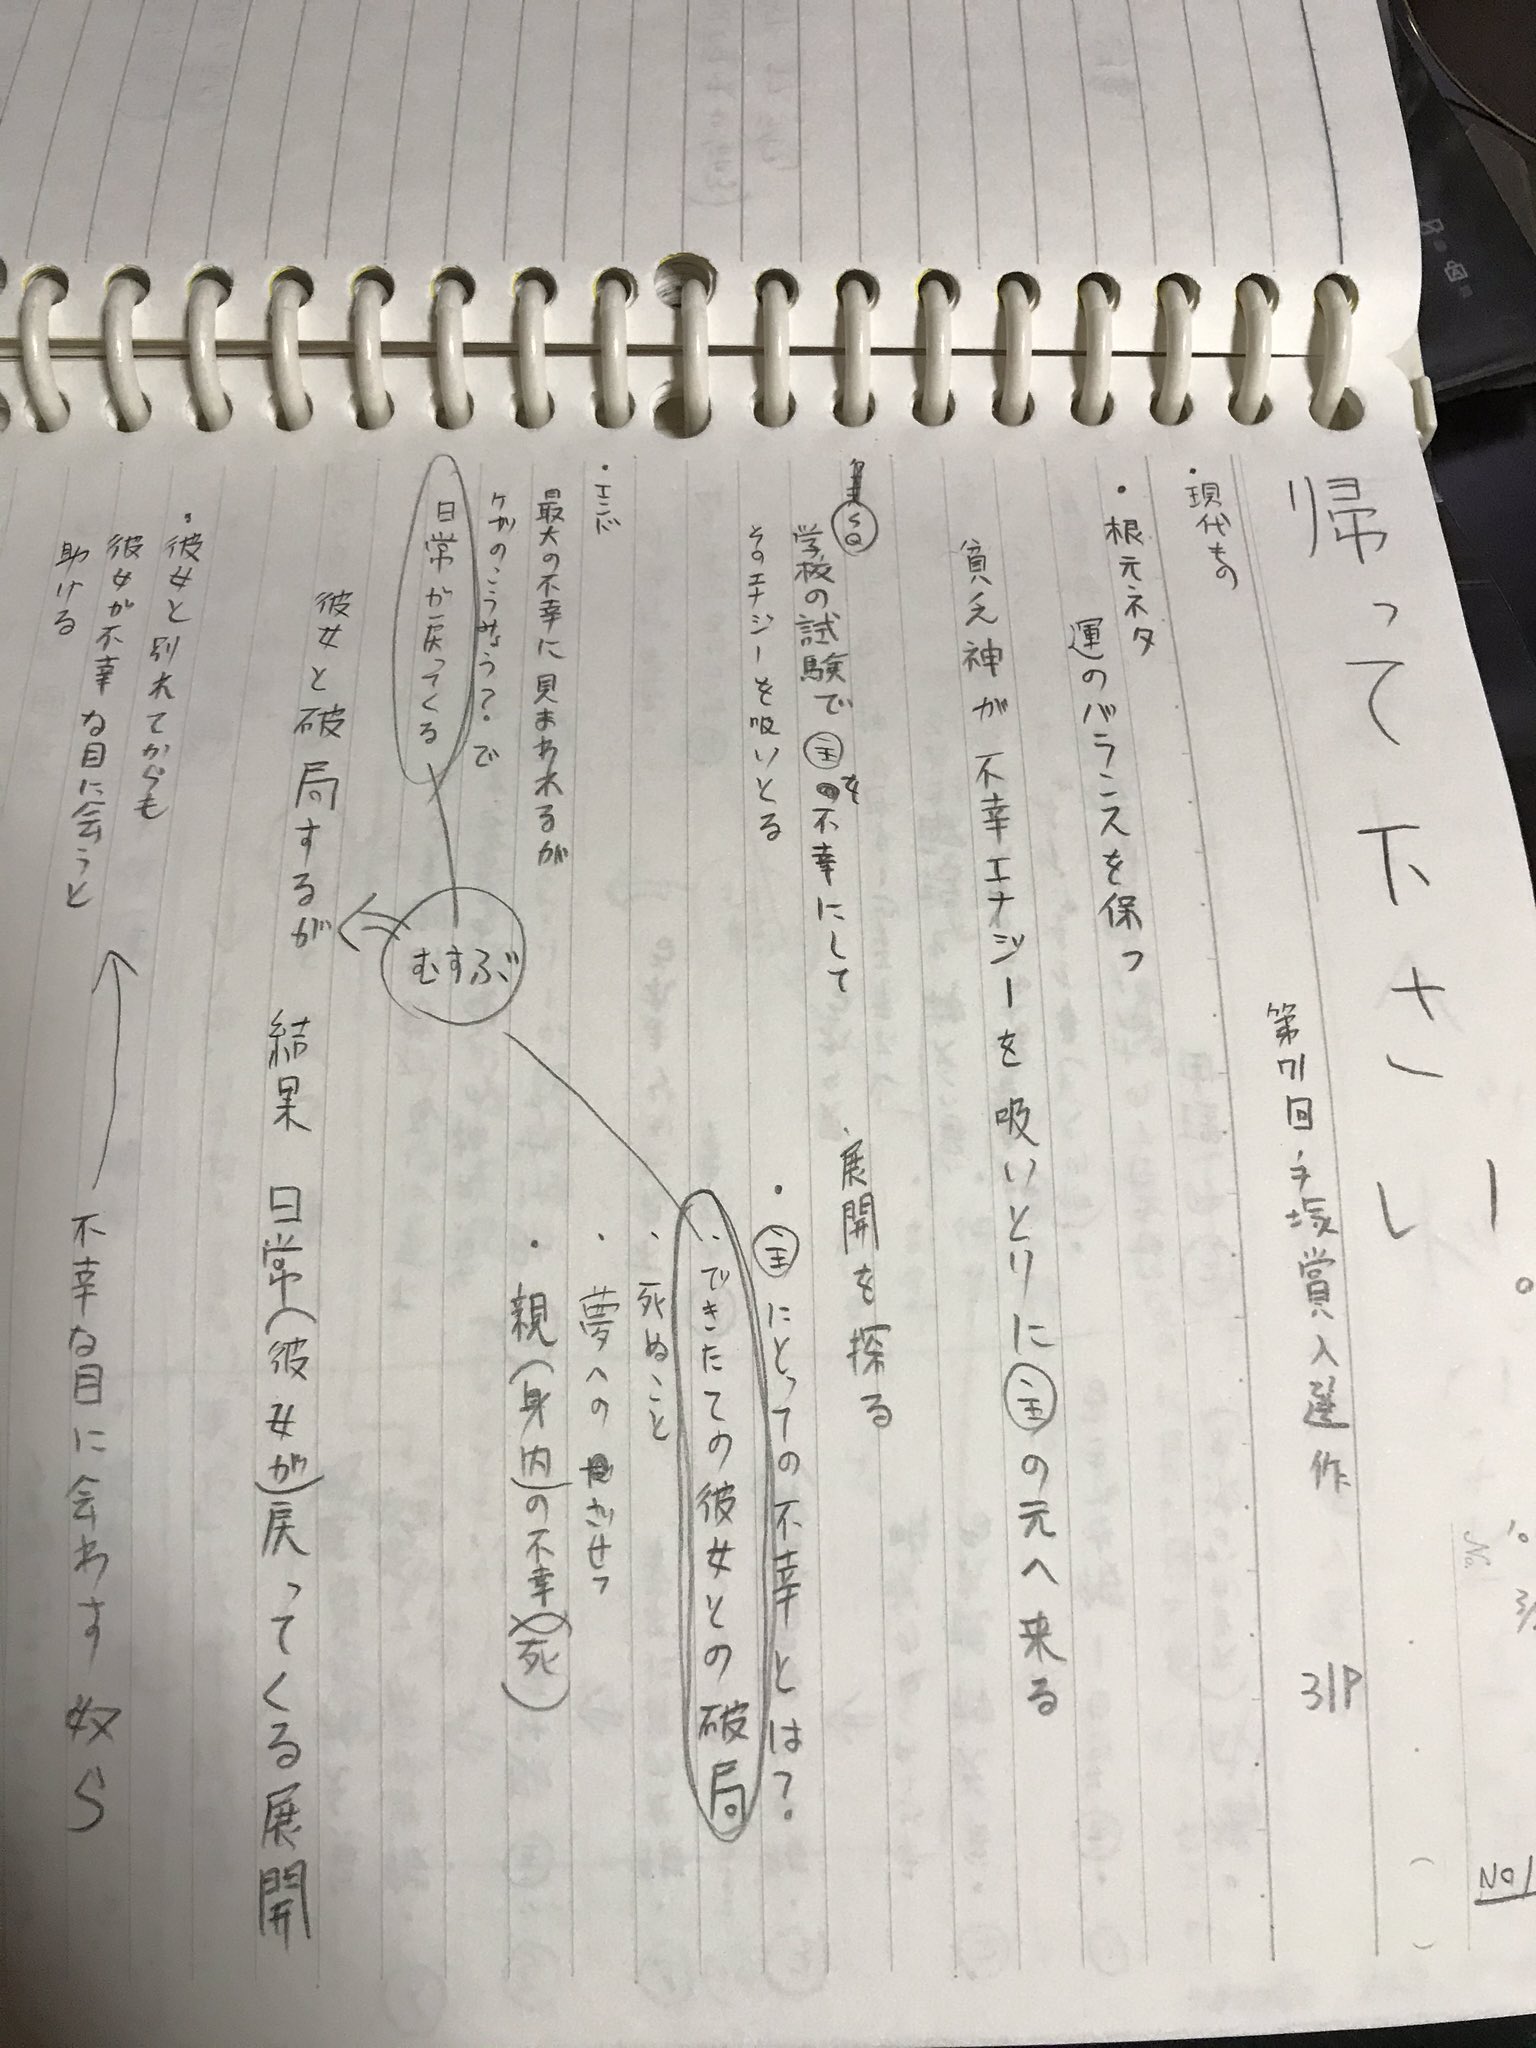 No1
帰って下さーい。
第71回手塚賞入選作 31P
・現代もの
・根元ネタ
運のバランスを保つ
貧乏神が不幸エナジーを吸いとりに主の元へ来る
学校の試験で主を不幸にして
そのエナジーを吸いとる
・展開を探る
・主にとっての不幸とは?
・できたての彼女との破局
・死ぬこと
・夢への
・親(身内)の不幸(死)
・エンド
最大の不幸に見まわれるが
ケガのこうみょう?で
日常が戻ってくる
むすぶ
彼女と破局するが 結果 日常(彼女が)戻ってくる展開
・彼女と別れてからも
彼女が不幸な目に会うと
助ける
不幸な目に会わす奴ら